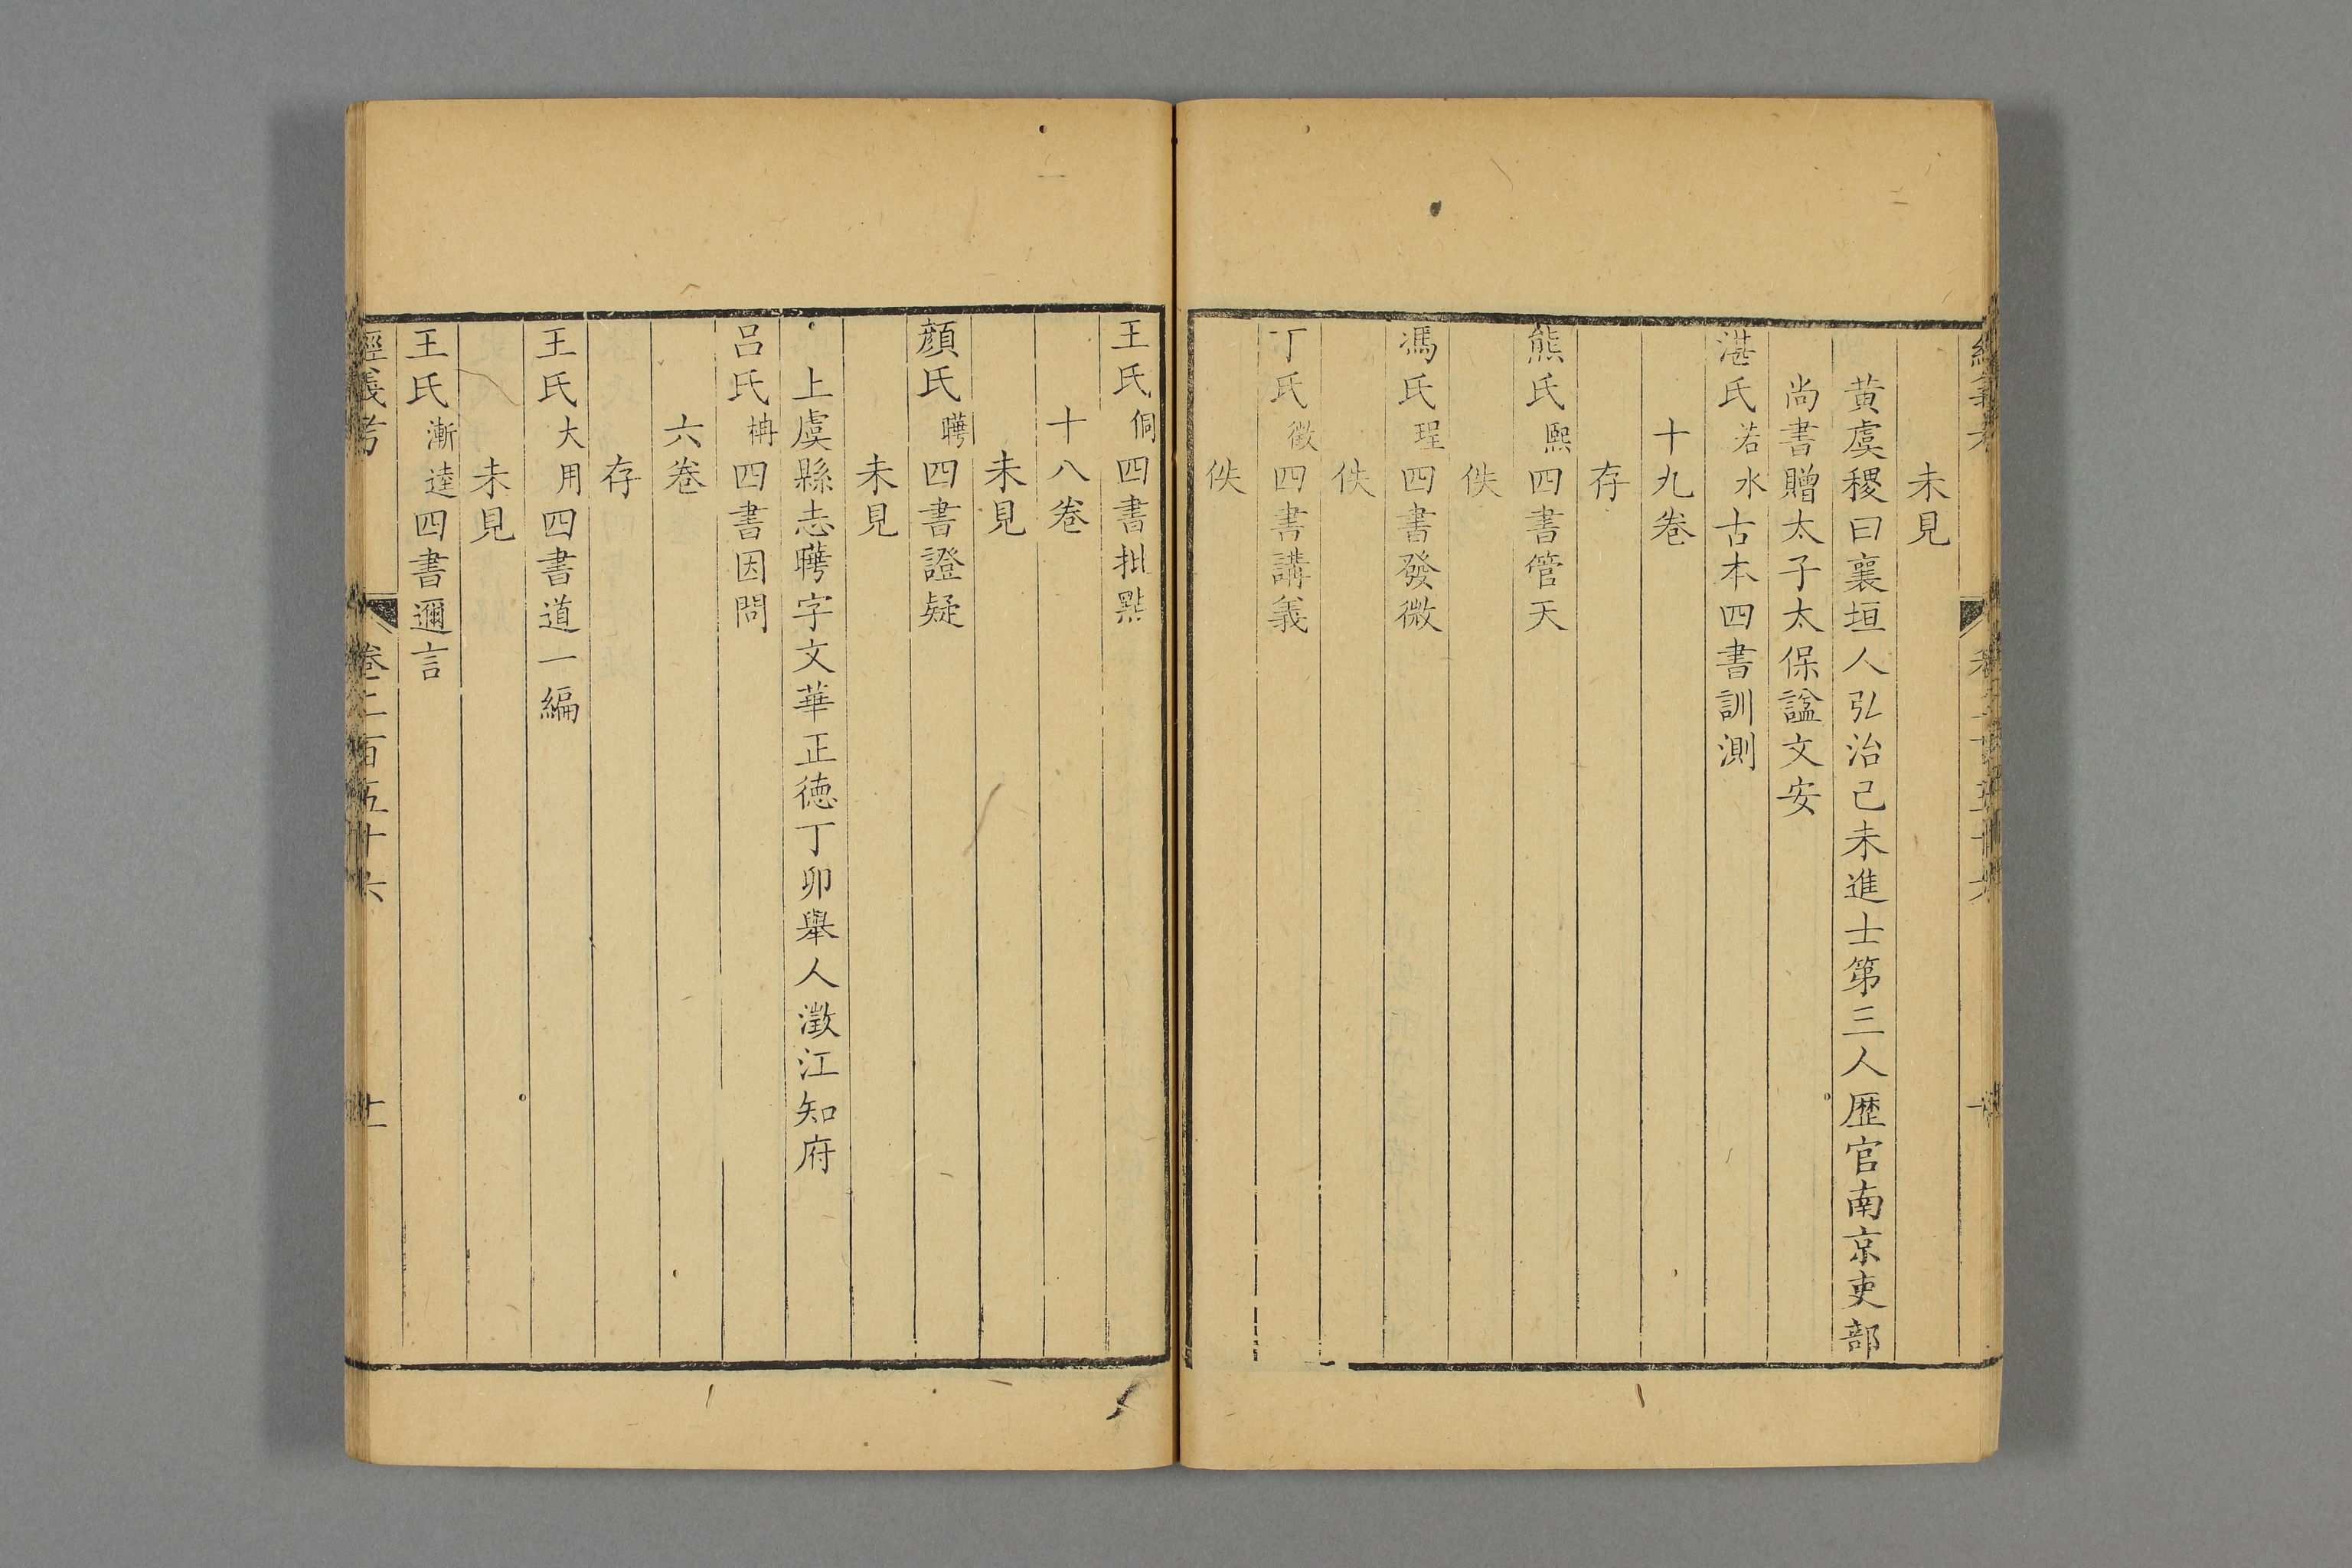 未見
黃虞稷曰襄垣人弘治己未進士第三人歷官南京吏部
尚書贈太子太保謚文安
湛氏若水古本四書訓測
十九卷
存
熊氏熙四書管天
佚
馮氏珵四書發微
佚
丁氏徵四書講義
佚
王氏侗四書批點
十八卷
未見
顔氏曄四書證疑
未見
上虞縣志曄字文華正德丁卯舉人澂江知府
呂氏柟四書因問
六卷
存
王氏大用四書道一編
未見
王氏漸逵四書邇言
經義考 卷二百五十六 十一